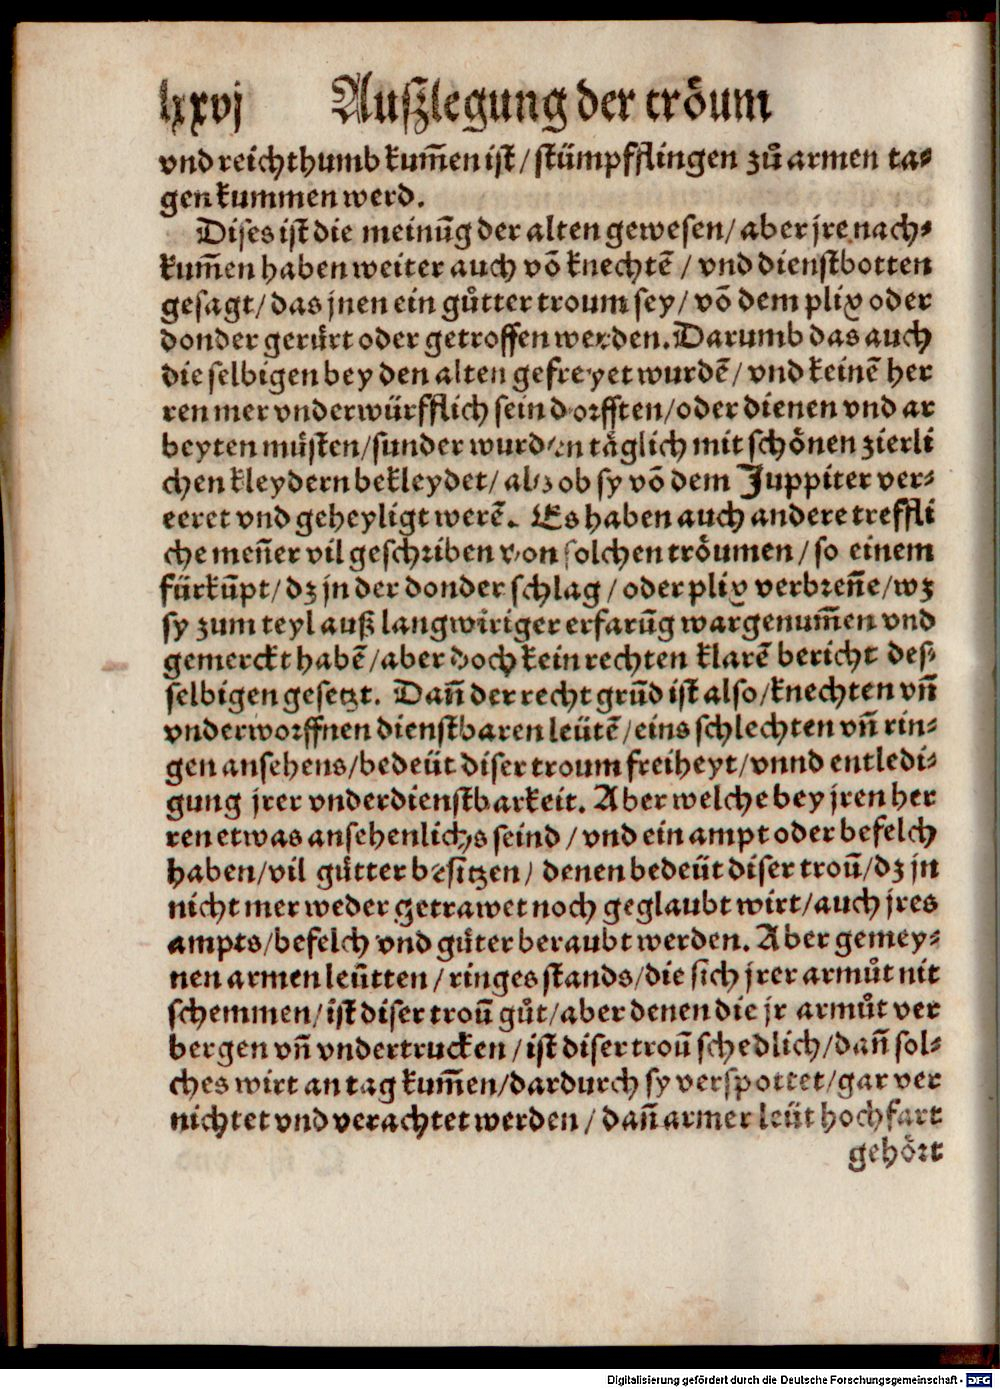 lxxvj Auſzlegung der tröum
vnd reichthumb kum̄en iſt / ſtümpfflingen zů armen ta⸗
gen kummen werd.
Diſes iſt die meinūg der alten geweſen / aber jre nach⸗
kum̄en haben weiter auch võ knechtẽ / vnd dienſtbotten
geſagt / das jnen ein gůtter troum ſey / võ dem plix oder
donder gerürt oder getroffen werden. Darumb das auch
die ſelbigen bey den alten gefreyet wurdẽ / vnd keinẽ her
ren mer vnderwürfflich ſein dorfften / oder dienen vnd ar
beyten müſten / ſunder wurden täglich mit ſchönen zierli
chen kleydern bekleydet / alſz ob ſy võ dem Juppiter ver⸗
eeret vnd geheyligt werẽ. Es haben auch andere treffli
che men̄er vil geſchꝛiben von ſolchen tröumen / ſo einem
fürkūpt / dz jn der donder ſchlag / oder plix verbꝛen̄e / wz
ſy zum teyl auß langwiriger erfarūg wargenum̄en vnd
gemerckt habẽ / aber doch kein rechten klarẽ bericht deſ⸗
ſelbigen geſetzt. Dan̄ der recht grūd iſt alſo / knechten vn̄
vnderwoꝛffnen dienſtbaren leütẽ / eins ſchlechten vn̄ rin⸗
gen anſehens / bedeüt diſer troum freiheyt / vnnd entledi⸗
gung jrer vnderdienſtbarkeit. Aber welche bey jren her
ren etwas anſehenlichs ſeind / vnd ein ampt oder befelch
haben / vil gütter beſitzen / denen bedeüt diſer troū / dz jn
nicht mer weder getrawet noch geglaubt wirt / auch jres
ampts / befelch vnd güter beraubt werden. Aber gemey⸗
nen armen leütten / ringes ſtands / die ſich jrer armůt nit
ſchemmen / iſt diſer troū gůt / aber denen die jr armůt ver
bergen vn̄ vndertrucken / iſt diſer troū ſchedlich / dan̄ ſol⸗
ches wirt an tag kum̄en / dardurch ſy verſpottet / gar ver
nichtet vnd verachtet werden / dan̄ armer leüt hochfart
gehöꝛt
Digitalisierung gefördert durch die Deutsche Forschungsgemeinschaft - DFG